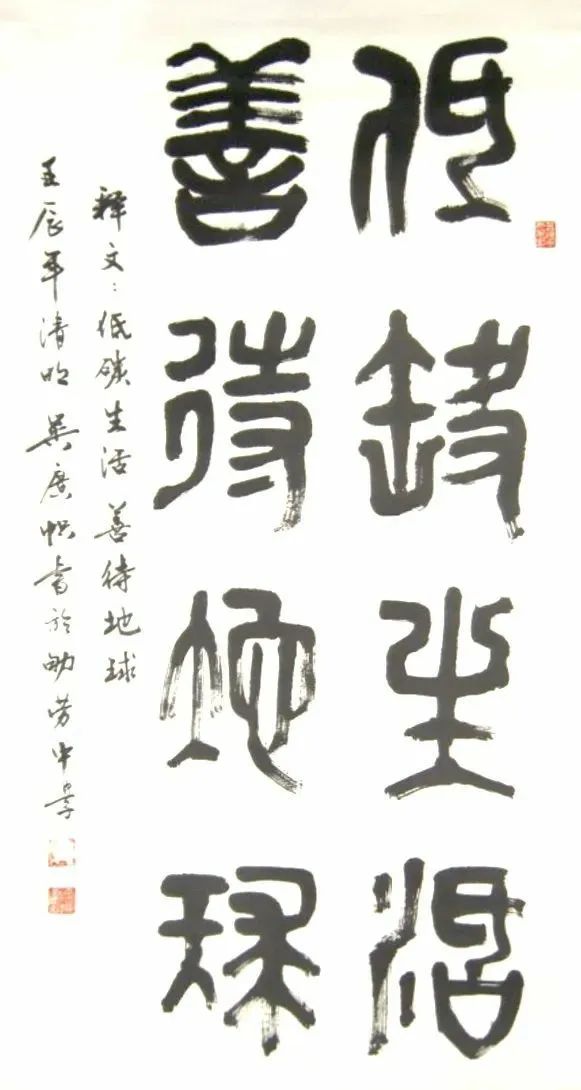 低碳生活
善待地球
释文:低碳生活 善待地球
壬辰年清明 吴 书於 中学